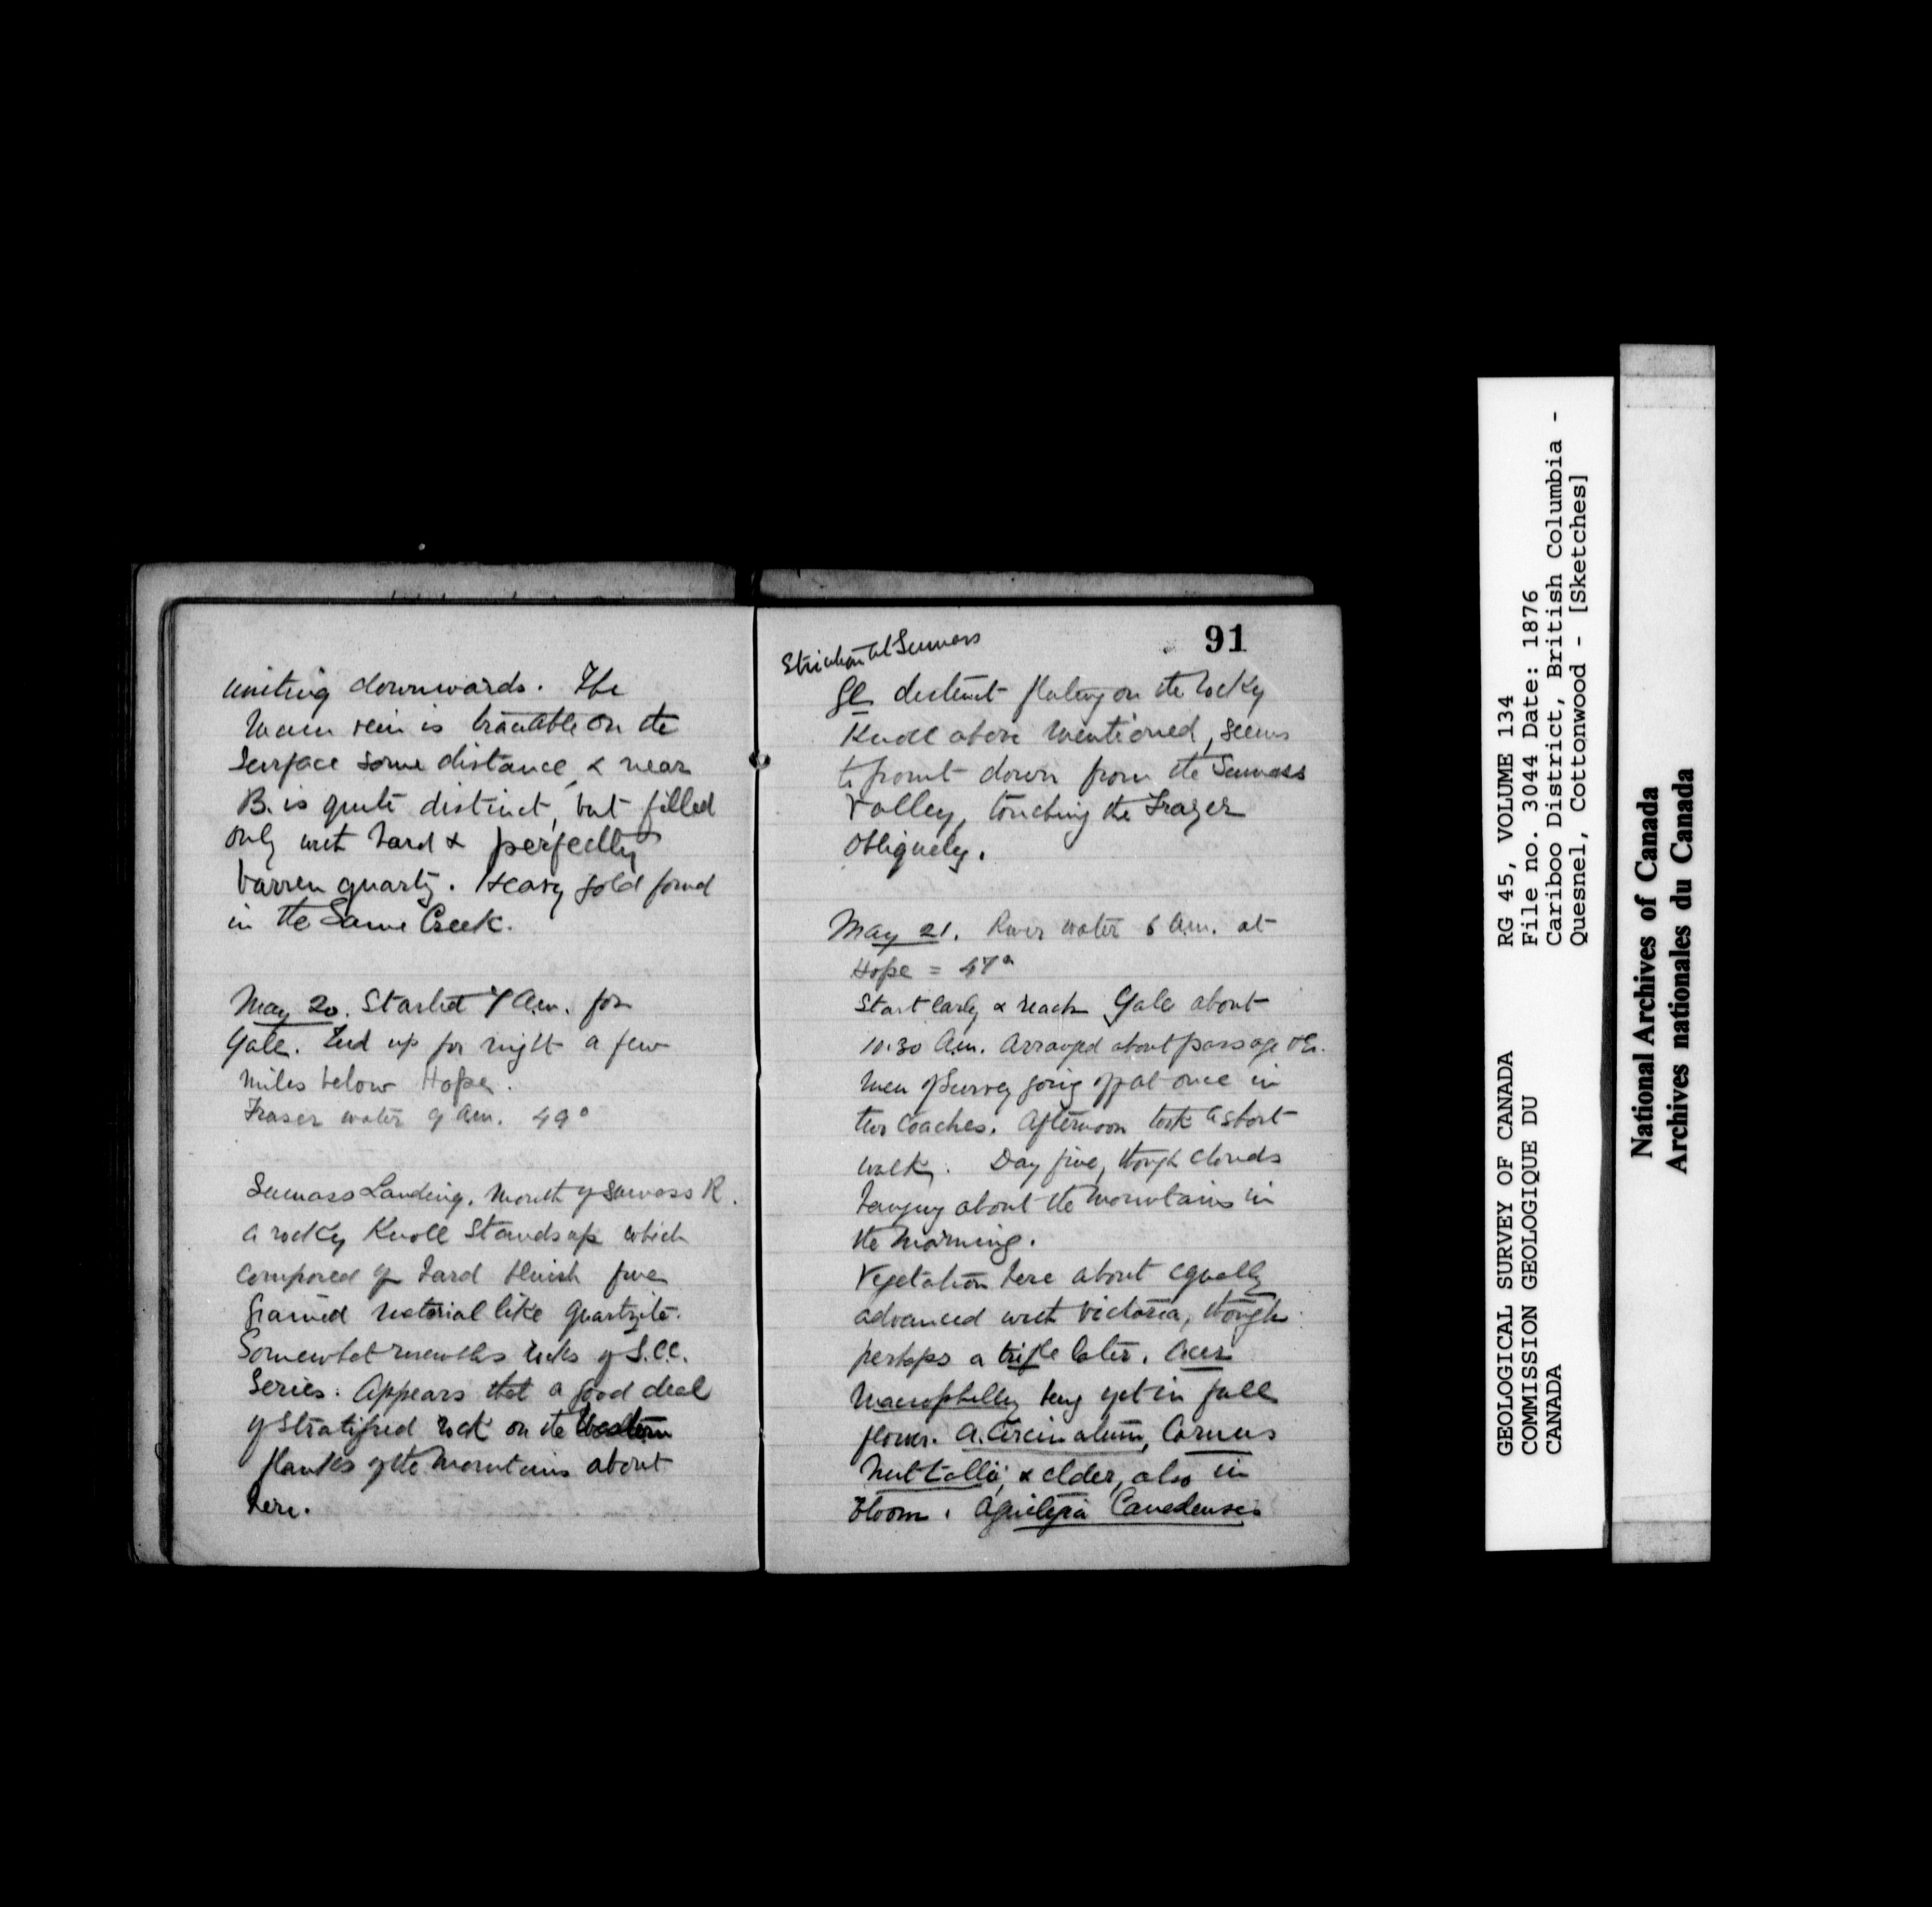 uniting downwards. The
Main vein is traceable on the
Surface some distance, & near
B. is quite distinct, but filled
only with hard & perfectly
barren quartz. Heavy gold found
in the Same Creek.
May 20. Started 7 A.m. for
Yale. Tied up for night a few
miles below Hope.
Fraser water 9 Am. 49°
Sumass Landing, Mouth of Sumass R.
a rocky Knoll Stands up which
composed of hard bluish fine
grained material like quartzite.
Somewhat resembles rocks of L.C.C.
Series. Appears that a good deal
of Stratified rock on the Western
flanks of the Mountains about
here.
91
Striation at Sumass
Gl. distinct fluting on the rocky
Knoll above mentioned, seems
to point down from the Sumass
Valley, touching the Frazer
obliquely.
May 21. River water 6 A.m. at
Hope = 47°
Start early & reach Yale about
10.30 A.m. Arranged about passage &c.
Men of Survey going off at once in
two Coaches. Afternoon took a short
walk. Day fine, though clouds
hanging about the Mountains in
the Morning.
Vegetation here about equally
advanced with Victoria, though
perhaps a trifle later. Acer
Macrophylly being yet in full
flower. A. Circinatum, Cornus
Nuttallii, & elder, also in
bloom. Aquilegia Canadensis
GEOLOGICAL SURVEY OF CANADA
COMMISSION GEOLOGIQUE DU
CANADA
RG 45, VOLUME 134
File no. 3044 Date: 1876
Cariboo District, British Columbia -
Quesnel, Cottonwood - [Sketches]
National Archives of Canada
Archives nationales du Canada